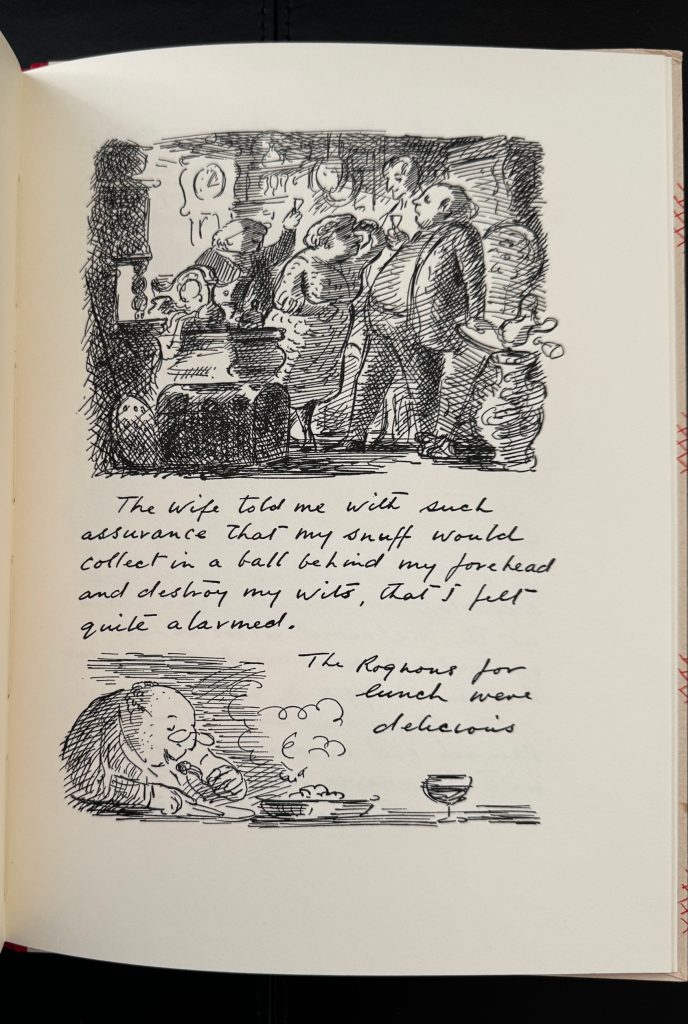 The wife told me with such
assurance that my snuff would
collect in a ball behind my forehead
and destroy my wits, that I felt
quite alarmed.
The Rognons for
lunch were
delicious